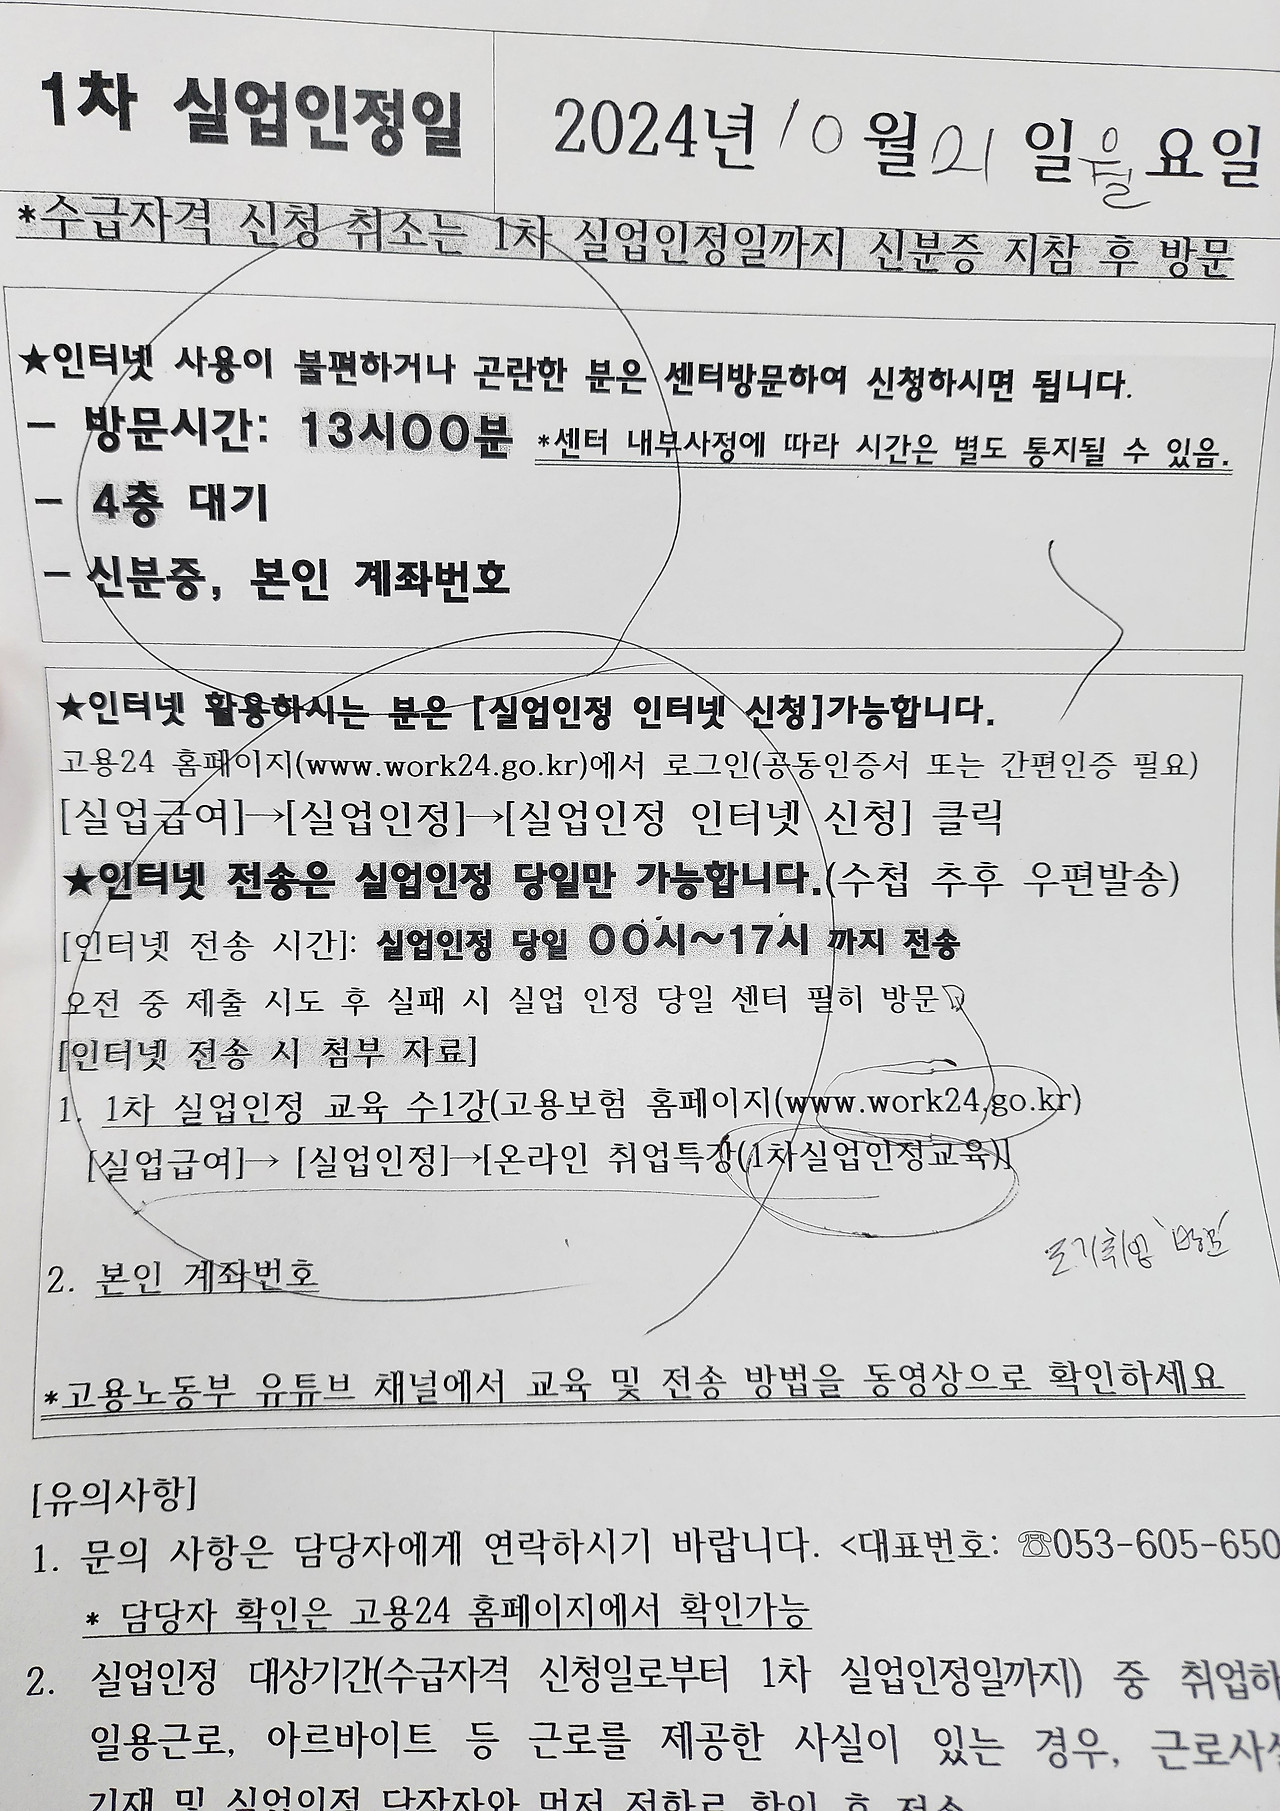 1차 실업인정일 2024년 10월 21일 월요일
*수급자격 신청 취소는 1차 실업인정일까지 신분증 지참 후 방문
★인터넷 사용이 불편하거나 곤란한 분은 센터방문하여 신청하시면 됩니다.
- 방문시간: 13시00분 *센터 내부사정에 따라 시간은 별도 통지될 수 있음.
- 4층 대기
- 신분증, 본인 계좌번호
★인터넷 활용하시는 분은 [실업인정 인터넷 신청]가능합니다.
고용24 홈페이지(www.work24.go.kr)에서 로그인(공동인증서 또는 간편인증 필요)
[실업급여]→[실업인정]→[실업인정 인터넷 신청] 클릭
★인터넷 전송은 실업인정 당일만 가능합니다.(수첩 추후 우편발송)
[인터넷 전송 시간]: 실업인정 당일 00시~17시 까지 전송
오전 중 제출 시도 후 실패 시 실업 인정 당일 센터 필히 방문
[인터넷 전송 시 첨부 자료]
1. 1차 실업인정 교육 수1강(고용보험 홈페이지(www.work24.go.kr)
[실업급여]→ [실업인정]→[온라인 취업특강(1차실업인정교육)]
조기취업
2. 본인 계좌번호
*고용노동부 유튜브 채널에서 교육 및 전송 방법을 동영상으로 확인하세요
[유의사항]
1. 문의 사항은 담당자에게 연락하시기 바랍니다. <대표번호: ☏053-605-650
* 담당자 확인은 고용24 홈페이지에서 확인가능
2. 실업인정 대상기간(수급자격 신청일로부터 1차 실업인정일까지) 중 취업하
일용근로, 아르바이트 등 근로를 제공한 사실이 있는 경우, 근로사실
기재 및 실업인정 담당자와 먼저 전화로 확인 후 전송